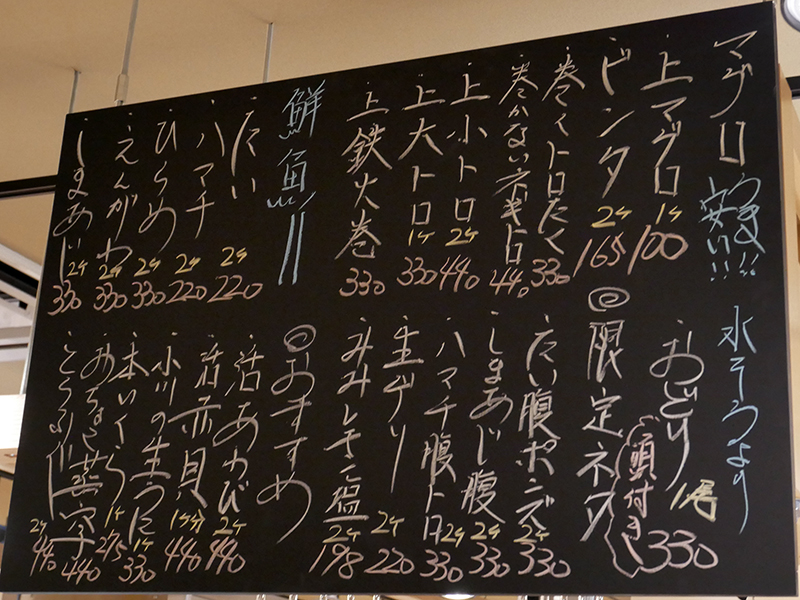 マグロ 安い!!
・上マグロ 1ケ 100
・ビンタ 2ケ 165
・巻くトロたく 330
・巻かないネギトロ 440
・上小トロ 2ケ 440
・上大トロ 1ケ 330
・上鉄火巻 330
鮮魚!!
・たい 2ケ 220
・ハマチ 2ケ 220
・ひらめ 2ケ 330
・えんがわ 2ケ 330
・しまあじ 2ケ 330
水そうより
・おどり 1尾 330
頭付き
◎限定ネタ
・たい腹ポンズ 2ケ 330
・しまあじ腹 2ケ 330
・ハマチ腹トロ 2ケ 330
・生ゲソ 2ケ 220
・みみレモン塩 2ケ 198
◎おすすめ
・活あわび 2ケ 440
・活赤貝 1ケ分 440
・小川の生うに 1ケ 330
・本いくら 1ケ 275
440
2ケ 440